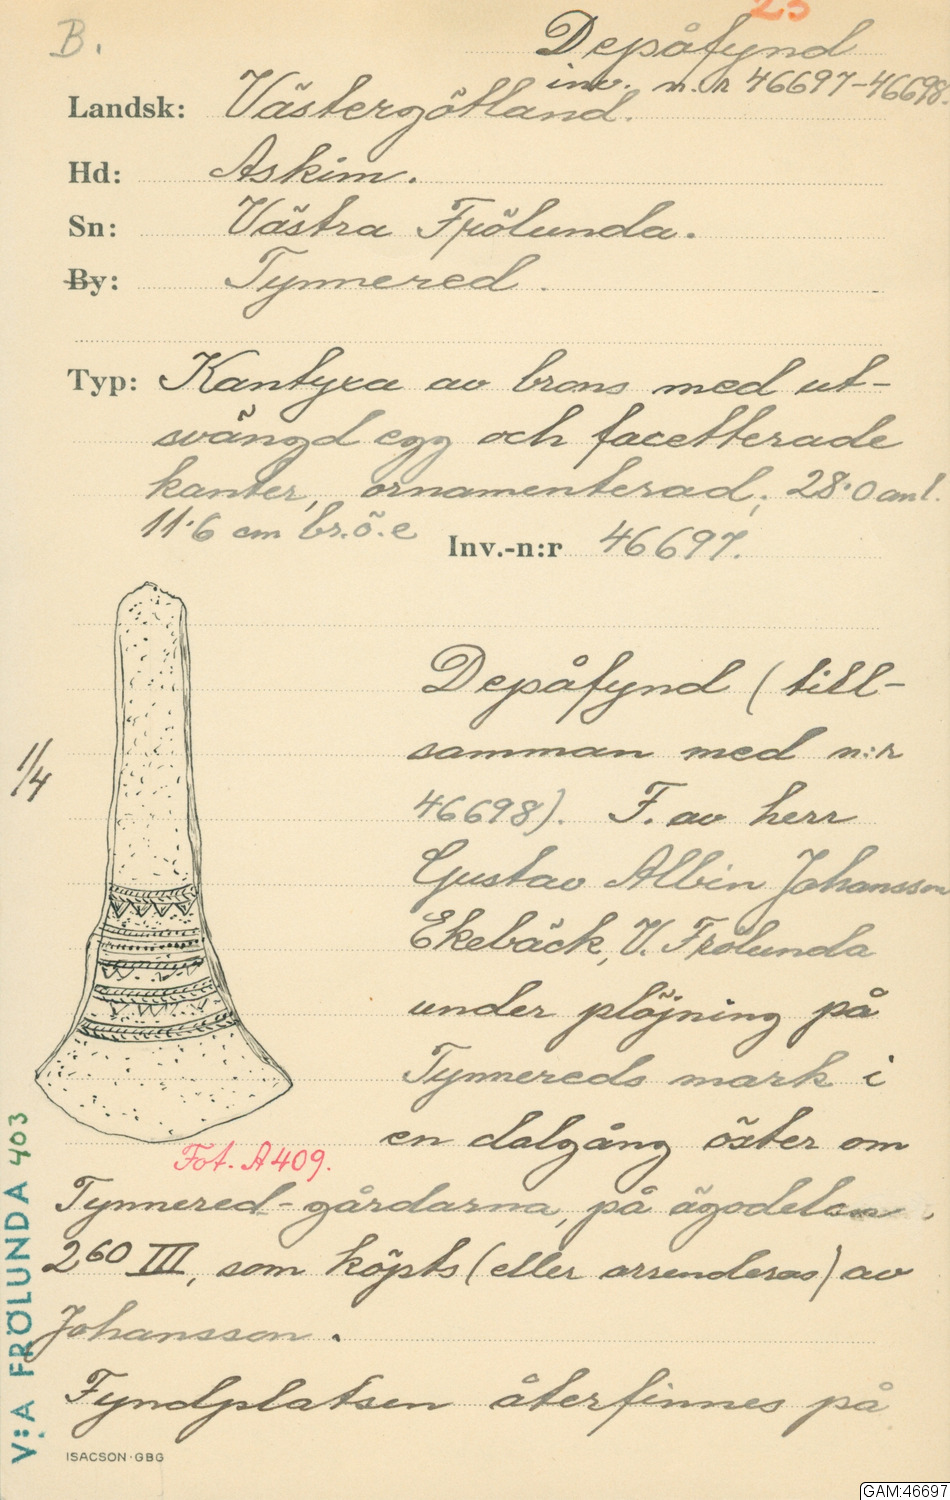 23
B.
Depåfynd
inv. n.r 46697-46698.
Landsk: Västergötland.
Hd: Askim.
Sn: Västra Frölunda.
By: Tynnered.
Typ: Kantyxa av brons med ut-
svängd egg och facetterade
kanter, ornamenterad; 28.0 cm l.
11.6 cm br. ö. e
Inv.-n:r 46697.
1/4
Depåfynd (till-
samman med n:r
46698). F. av herr
Gustav Albin Johansson
Ekebäck, V. Frölunda
under plöjning på
Tynnereds mark i
en dalgång öster om
Fot. A409.
Tynnered-gårdarna, på ägodelen
2 60 III, som köpts (eller arrenderas) av
Johansson.
Fyndplatsen återfinnes på
V:A FRÖLUNDA 403
ISACSON·GBG
GAM:46697